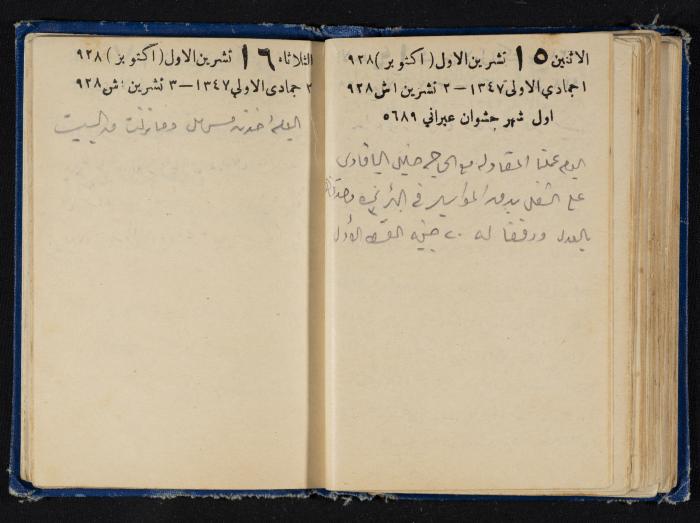 الاثنين ١٥ تشرين الاول (اكتوبر) ٩٢٨
١ جمادى الاولى ١٣٤٧ – ٢ تشرين ١ ش ٩٢٨
اول شهر جشوان عبراني ٥٦٨٩
اليوم عملنا المقاوله مع الحاج خليل
على الشغل بدق المواسير في البئر
بالعدل ودفعنا له ٢٠ جنيه القسط الأول
الثلاثاء ١٦ تشرين الاول (اكتوبر) ٩٢٨
٢ جمادى الاولى ١٣٤٧ – ٣ تشرين ١ ش ٩٢٨
اليوم اخذت مسهل وما نزلت من البيت